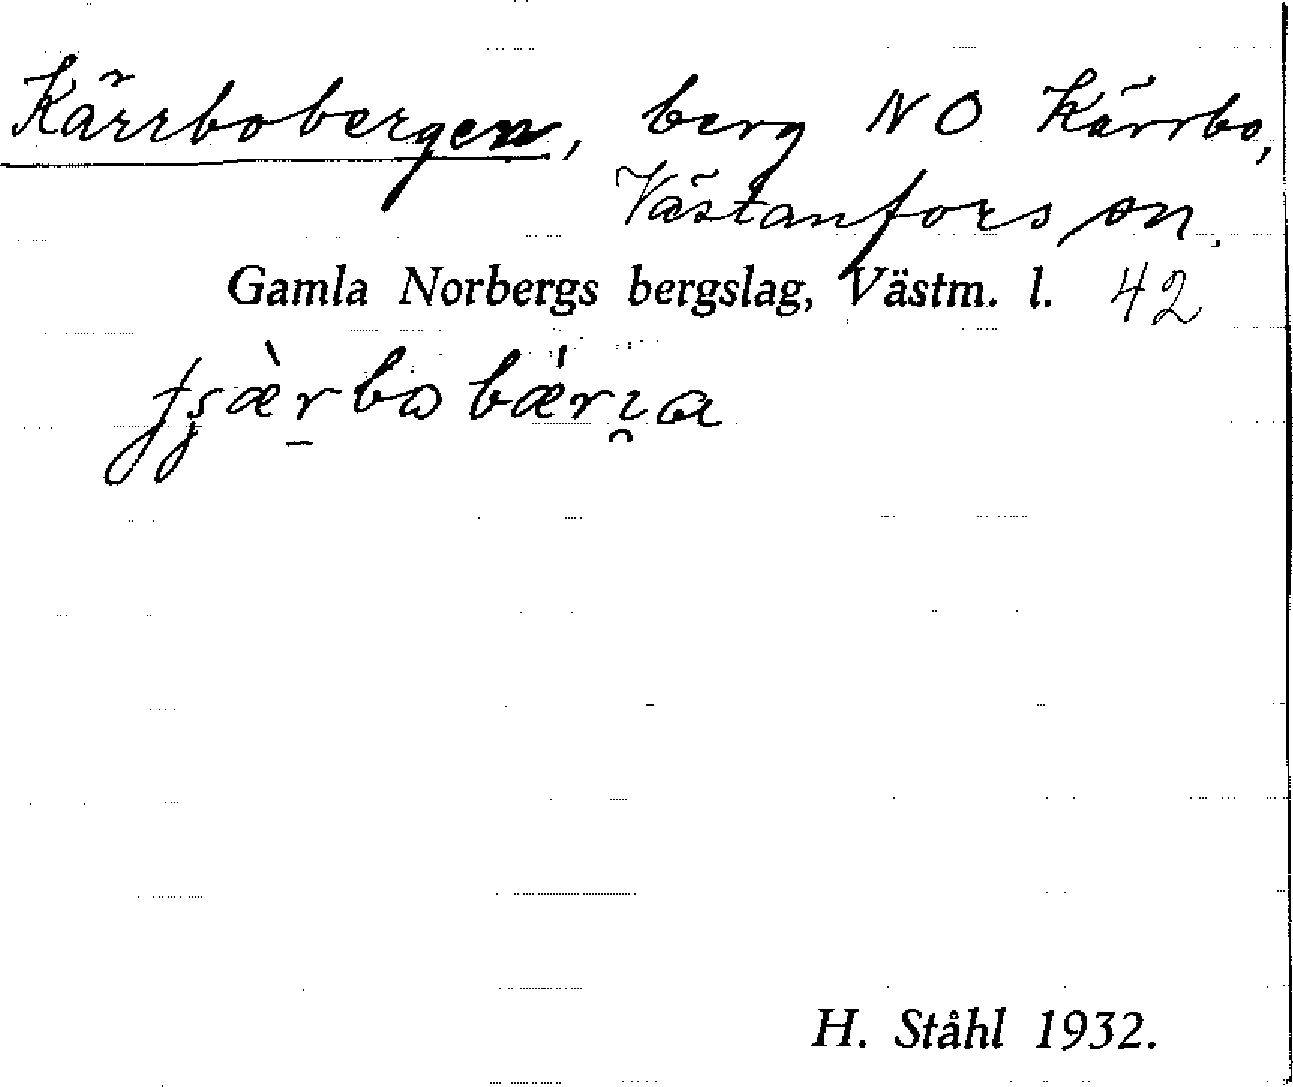 Kärrbobergen, berg NO Kärrbo,
Västanfors sn.
Gamla Norbergs bergslag, Västm. l. 42
H. Ståhl 1932.